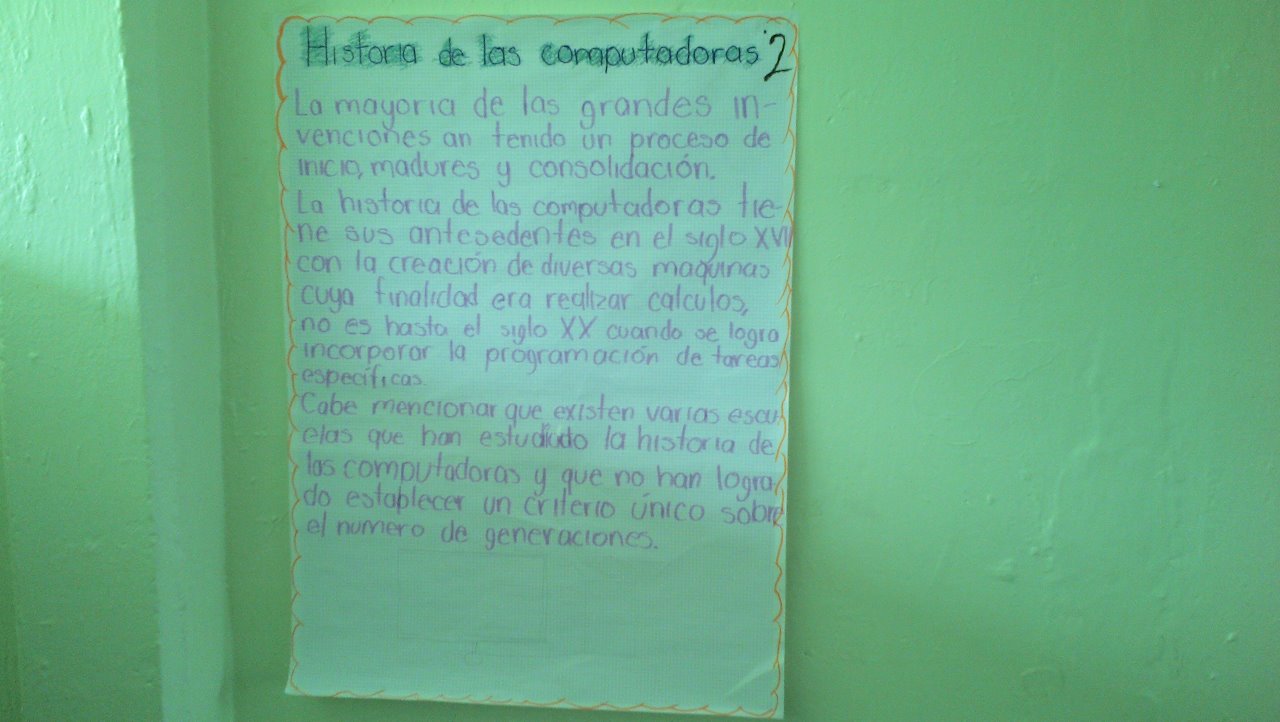 Historia de las computadoras 2
La mayoria de las grandes in-
venciones an tenido un proceso de
inicio, madures y consolidación.
La historia de las computadoras tie-
ne sus antesedentes en el siglo XVII
con la creación de diversas maquinas
cuya finalidad era realizar calculos,
no es hasta el siglo XX cuando se logra
incorporar la programación de tareas
específicas.
Cabe mencionar que existen varias escu
elas que han estudiado la historia de
las computadoras y que no han logra
do establecer un criterio único sobre
el numero de generaciones.